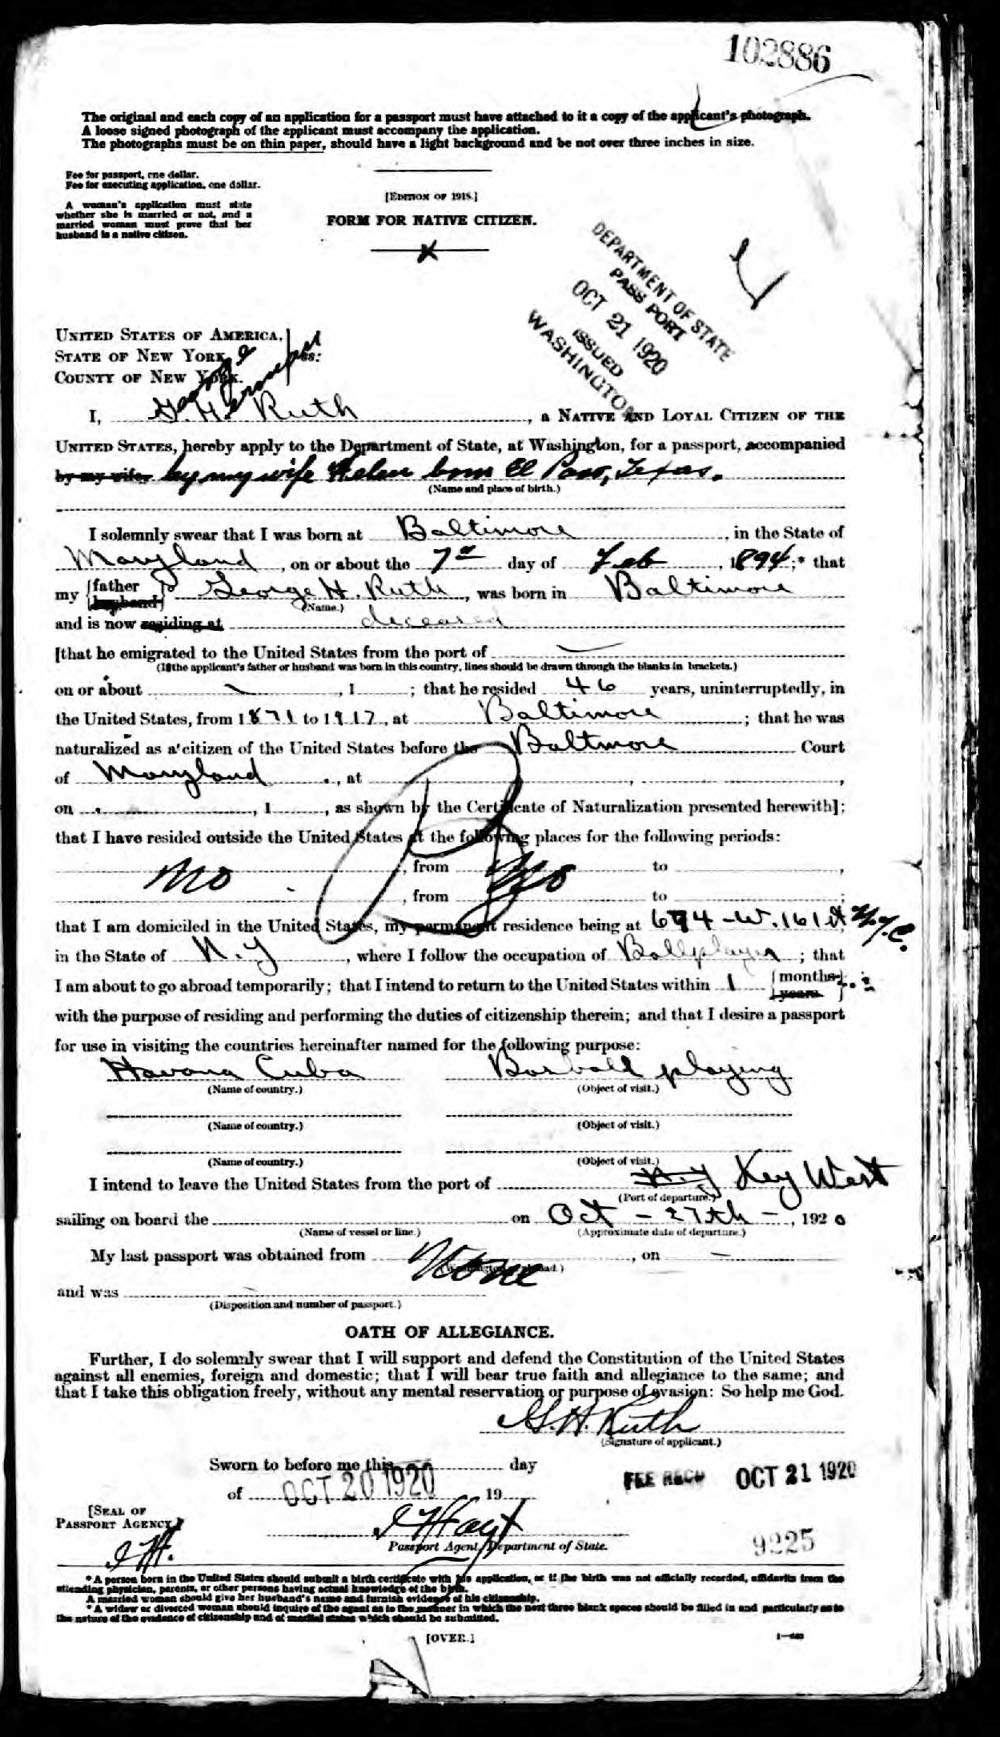 102886
The original and each copy of an application for a passport must have attached to it a copy of the applicant's photograph.
A loose signed photograph of the applicant must accompany the application.
The photographs must be on thin paper, should have a light background and be not over three inches in size.
Fee for passport, one dollar.
Fee for executing application, one dollar.
A woman's application must state
whether she is married or not, and a
married woman must prove that her
husband is a native citizen.
[EDITION OF 1918.]
FORM FOR NATIVE CITIZEN.
DEPARTMENT OF STATE
PASSPORT
OCT 21 1920
ISSUED
WASHINGTON
UNITED STATES OF AMERICA,
STATE OF NEW YORK, ss:
COUNTY OF NEW YORK.
George Herman
I, G. H. Ruth, a NATIVE AND LOYAL CITIZEN OF THE
UNITED STATES, hereby apply to the Department of State, at Washington, for a passport, accompanied
by my wife by my wife Helen born El Paso, Texas.
(Name and place of birth.)
I solemnly swear that I was born at Baltimore, in the State of
Maryland, on or about the 7th day of Feb, 1894;* that
my {father husband} George H. Ruth, was born in Baltimore
(Name.)
and is now residing at deceased
[that he emigrated to the United States from the port of
(If the applicant's father or husband was born in this country, lines should be drawn through the blanks in brackets.)
on or about , 1 ; that he resided 46 years, uninterruptedly, in
the United States, from 1871 to 1917, at Baltimore; that he was
naturalized as a citizen of the United States before the Baltimore Court
of Maryland, at
on , 1 , as shown by the Certificate of Naturalization presented herewith];
that I have resided outside the United States at the following places for the following periods:
no, from no to
, from to
that I am domiciled in the United States, my permanent residence being at 694 - W. 161 St N.Y.C.
in the State of N.Y, where I follow the occupation of Ballplayer; that
I am about to go abroad temporarily; that I intend to return to the United States within 1 {months years}
with the purpose of residing and performing the duties of citizenship therein; and that I desire a passport
for use in visiting the countries hereinafter named for the following purpose:
Havana Cuba Basball playing
(Name of country.) (Object of visit.)
(Name of country.) (Object of visit.)
(Name of country.) (Object of visit.)
I intend to leave the United States from the port of N.Y Key West
(Port of departure.)
sailing on board the on Oct - 27th -, 1920
(Name of vessel or line.) (Approximate date of departure.)
My last passport was obtained from None, on
and was
(Disposition and number of passport.)
OATH OF ALLEGIANCE.
Further, I do solemnly swear that I will support and defend the Constitution of the United States
against all enemies, foreign and domestic; that I will bear true faith and allegiance to the same; and
that I take this obligation freely, without any mental reservation or purpose of evasion: So help me God.
G. H. Ruth
(Signature of applicant.)
Sworn to before me this day
of OCT 20 1920 19
FEE RECD OCT 21 1920
[SEAL OF
PASSPORT AGENCY.]
Passport Agent, Department of State.
9225
*A person born in the United States should submit a birth certificate with his application, or if the birth was not officially recorded, affidavits from the
attending physician, parents, or other persons having actual knowledge of the birth.
A married woman should give her husband's name and furnish evidence of his citizenship.
*A widow or divorced woman should inquire of the agent as to the manner in which the next three blank spaces should be filled in and particularly as to
the nature of the evidence of citizenship and of marital status which should be submitted.
[OVER.]